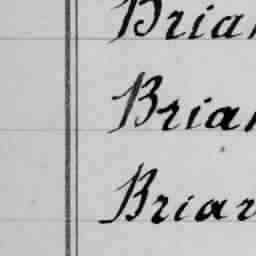 Brian
Brian
Briar